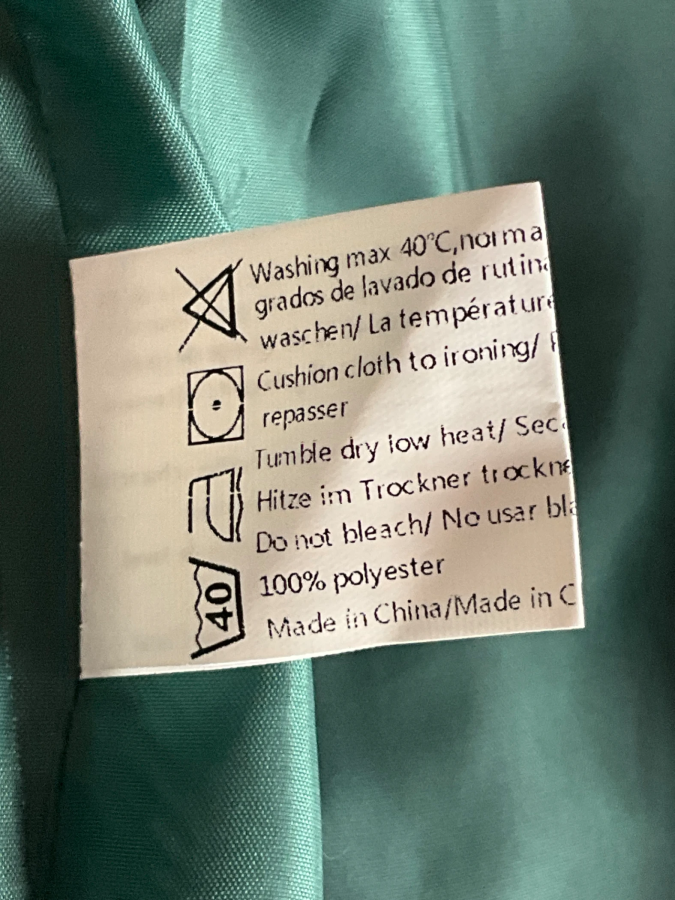 Washing max 40°C,norma
grados de lavado de rutin
waschen/ La température
Cushion cloth to ironing/
repasser
Tumble dry low heat/ Sec
Hitze im Trockner trockne
Do not bleach/ No usar bla
100% polyester
Made in China/Made in C
40